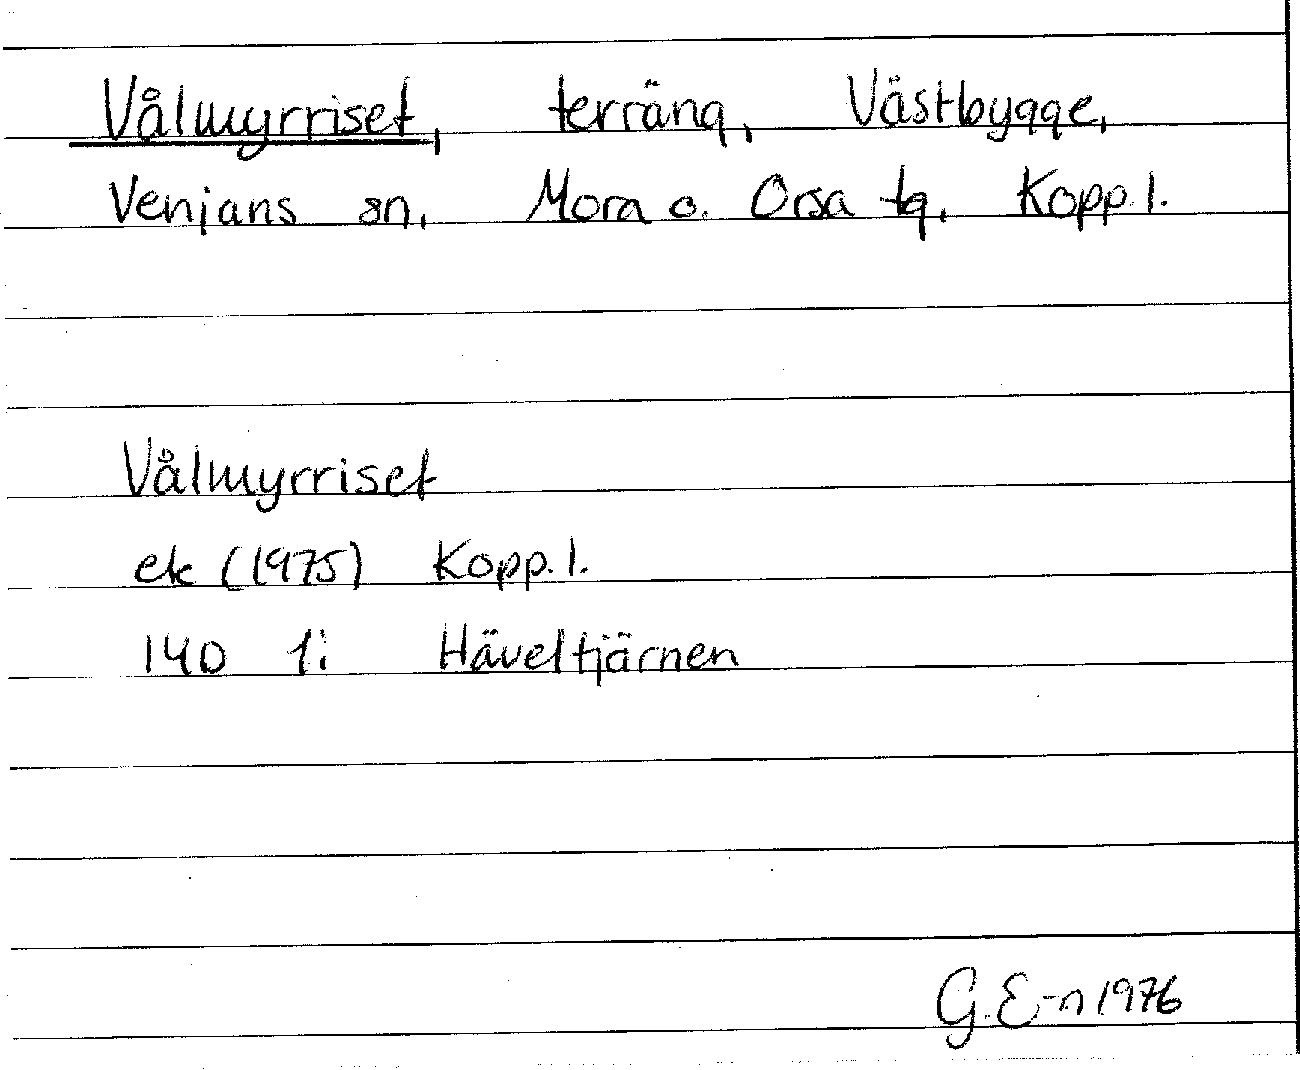 Vålmyrriset, terräng, Västbygge,
Venjans sn, Mora o. Orsa tg, Kopp. l.
Vålmyrriset
ek (1975) Kopp. l.
140 1i Häveltjärnen
G. E-n 1976